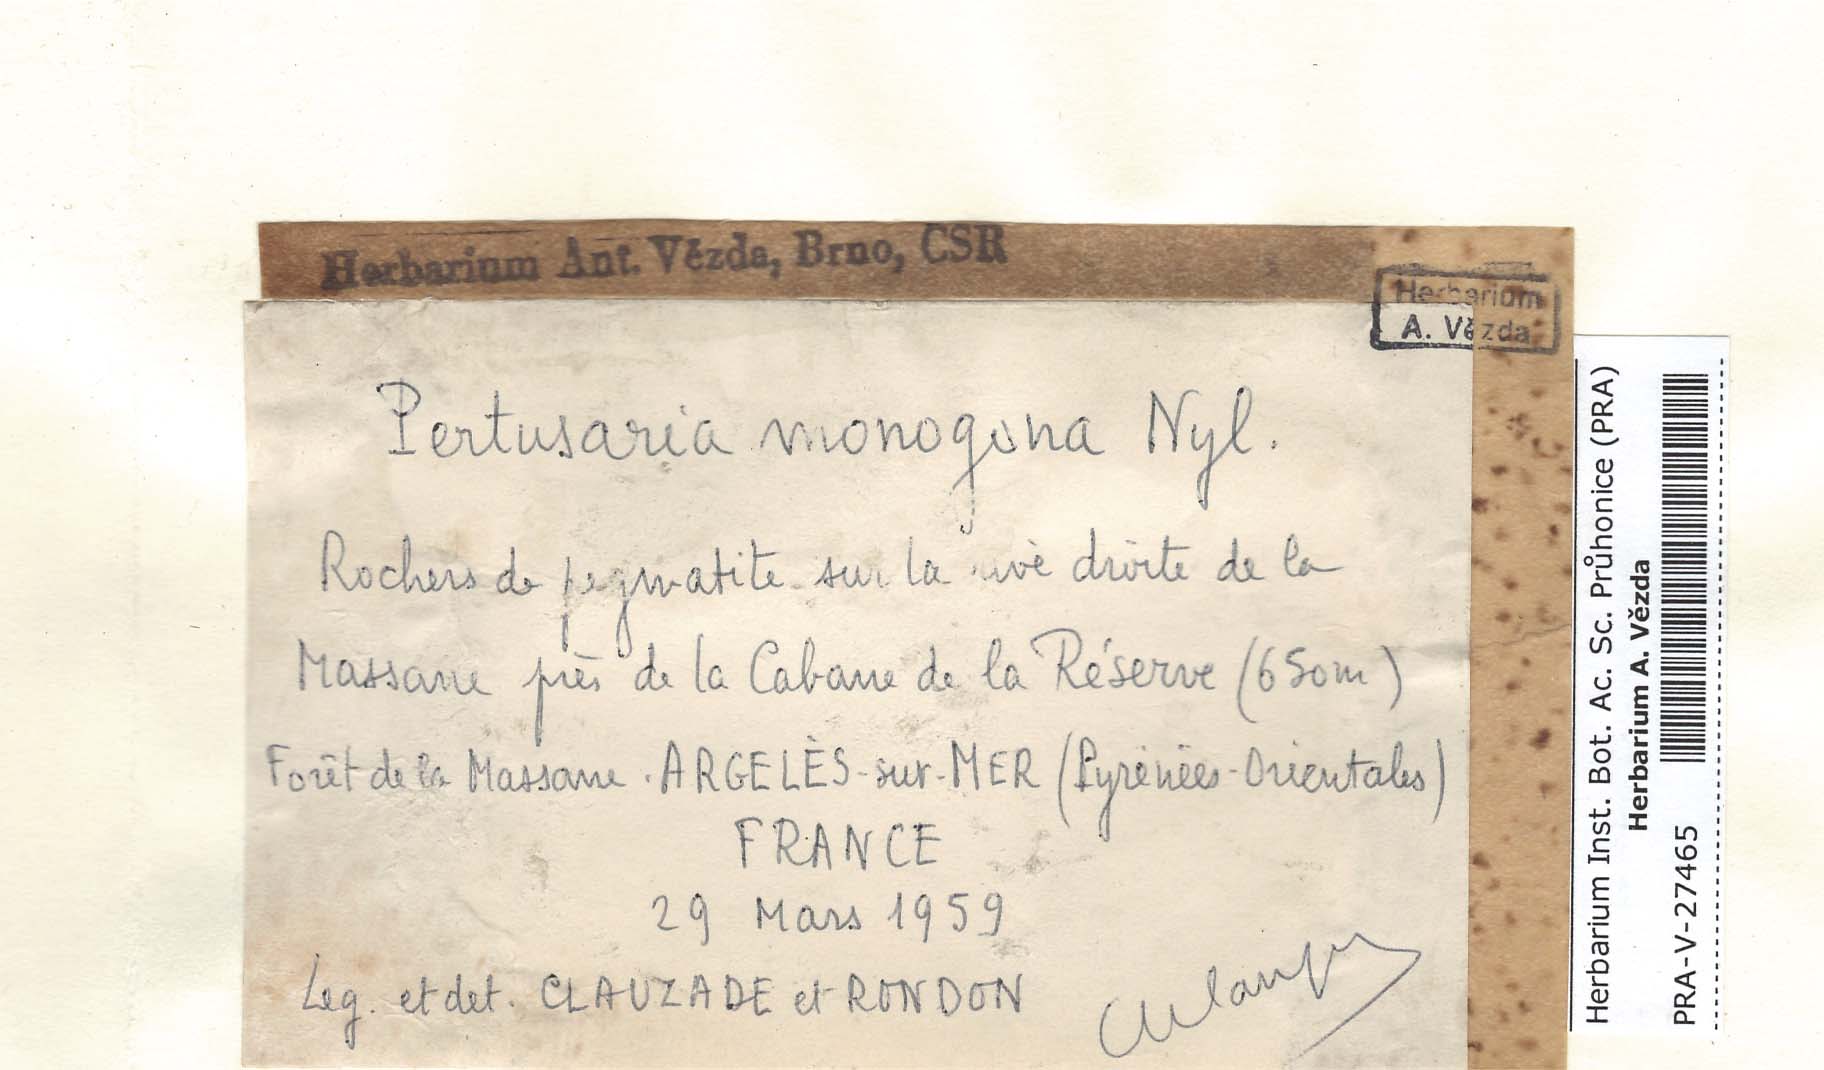 Herbarium Ant. Vězda, Brno, CSR
Herbarium
A. Vězda
Pertusaria monogona Nyl.
Rochers de pegmatite sur la rive droite de la
Massane près de la Cabane de la Réserve (650m)
Forêt de la Massane. ARGELÈS-sur-MER (Pyrénées-Orientales)
FRANCE
29 Mars 1959
Leg. et det. CLAUZADE et RONDON
Herbarium Inst. Bot. Ac. Sc. Průhonice (PRA)
Herbarium A. Vězda
PRA-V-27465